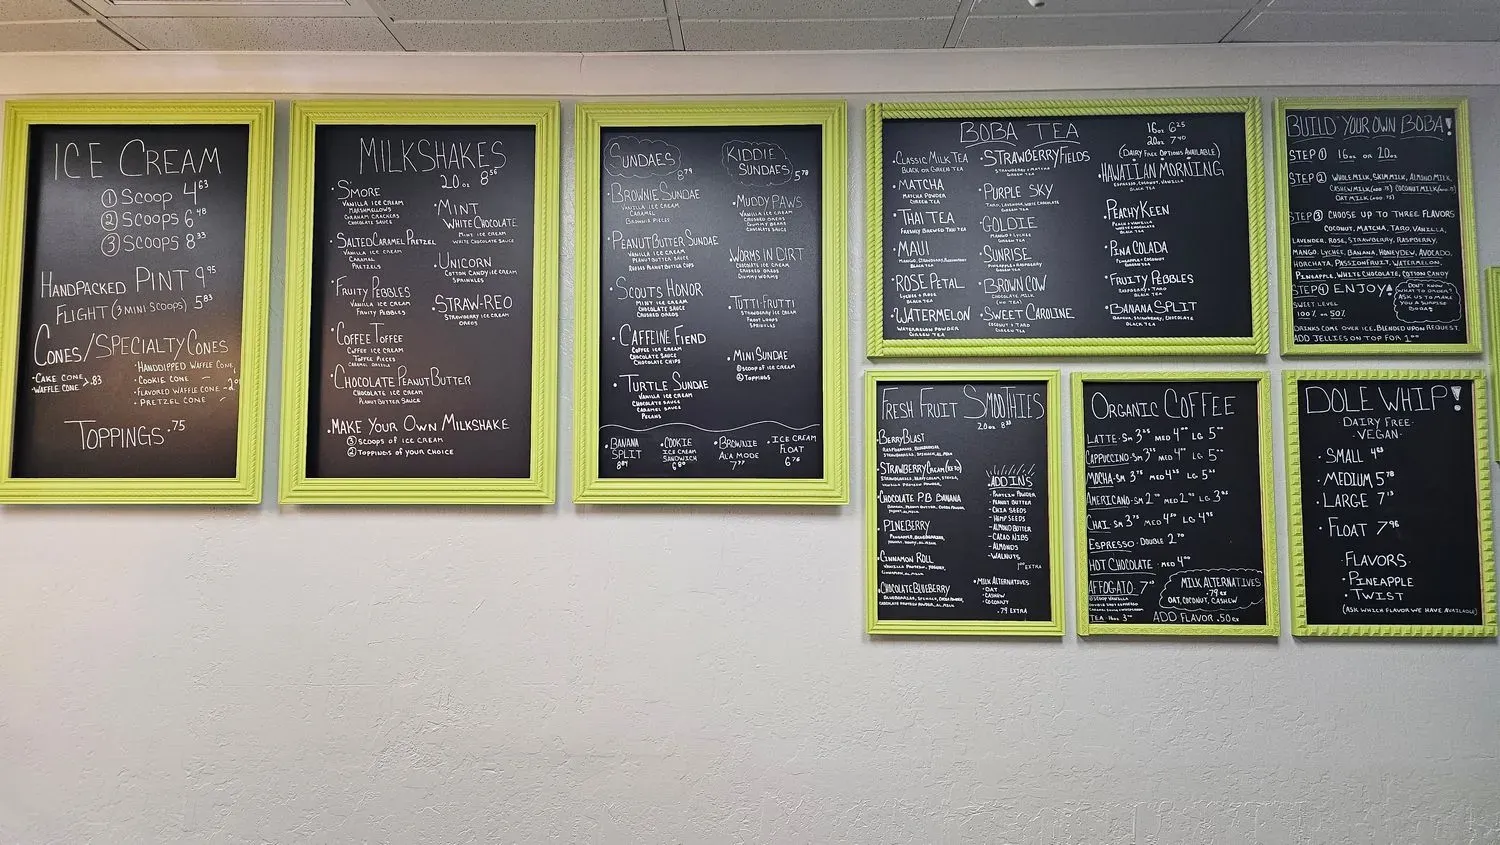 ICE CREAM
① SCOOP 4.63
② SCOOPS 6.48
③ SCOOPS 8.33
HANDPACKED PINT 9.95
FLIGHT (3 MINI SCOOPS) 5.83
CONES/SPECIALTY CONES
·CAKE CONE
·WAFFLE CONE >.83
·HANDDIPPED WAFFLE CONE
·COOKIE CONE
·FLAVORED WAFFLE CONE
·PRETZEL CONE
TOPPINGS .75
MILKSHAKES
20oz 8.56
·SMORE
VANILLA ICE CREAM
MARSHMALLOWS
GRAHAM CRACKERS
CHOCOLATE SAUCE
·SALTED CARAMEL PRETZEL
VANILLA ICE CREAM
CARAMEL
PRETZELS
·FRUITY PEBBLES
VANILLA ICE CREAM
FRUITY PEBBLES
·COFFEE TOFFEE
COFFEE ICE CREAM
TOFFEE PIECES
CARAMEL DRIZZLE
·CHOCOLATE PEANUT BUTTER
CHOCOLATE ICE CREAM
PEANUT BUTTER SAUCE
·MINT
WHITE CHOCOLATE
MINT ICE CREAM
WHITE CHOCOLATE SAUCE
·UNICORN
COTTON CANDY ICE CREAM
SPRINKLES
·STRAW-REO
STRAWBERRY ICE CREAM
OREOS
·MAKE YOUR OWN MILKSHAKE
③ SCOOPS OF ICE CREAM
② TOPPINGS OF YOUR CHOICE
SUNDAES 8.79
·BROWNIE SUNDAE
VANILLA ICE CREAM
CARAMEL
BROWNIE PIECES
·PEANUT BUTTER SUNDAE
VANILLA ICE CREAM
PEANUT BUTTER SAUCE
REESES PEANUT BUTTER CUPS
·SCOUTS HONOR
MINT ICE CREAM
CHOCOLATE SAUCE
CRUSHED OREOS
·CAFFEINE FIEND
COFFEE ICE CREAM
CHOCOLATE SAUCE
CHOCOLATE CHIPS
·TURTLE SUNDAE
VANILLA ICE CREAM
CHOCOLATE SAUCE
CARAMEL SAUCE
PECANS
KIDDIE
SUNDAES 5.78
·MUDDY PAWS
VANILLA ICE CREAM
CRUSHED OREOS
GUMMY BEARS
CHOCOLATE SAUCE
·WORMS IN DIRT
CHOCOLATE ICE CREAM
CRUSHED OREOS
GUMMY WORMS
·TUTTI-FRUTTI
STRAWBERRY ICE CREAM
FROOT LOOPS
SPRINKLES
·MINI SUNDAE
① SCOOP OF ICE CREAM
② TOPPINGS
·BANANA
SPLIT
·COOKIE
ICE CREAM
SANDWICH
·BROWNIE
ALA MODE
·ICE CREAM
FLOAT
6.76
BOBA TEA
16oz 6.25
20oz 7.40
(DAIRY FREE OPTIONS AVAILABLE)
·CLASSIC MILK TEA
BLACK OR GREEN TEA
·MATCHA
MATCHA POWDER
GREEN TEA
·THAI TEA
FRESHLY BREWED THAI TEA
·MAUI
GREEN TEA
·ROSE PETAL
LYCHEE + ROSE
BLACK TEA
·WATERMELON
WATERMELON POWDER
GREEN TEA
·STRAWBERRY FIELDS
STRAWBERRY + MATCHA
GREEN TEA
·PURPLE SKY
TARO, LAVENDER, WHITE CHOCOLATE
GREEN TEA
·GOLDIE
MANGO + LYCHEE
GREEN TEA
·SUNRISE
PINEAPPLE + RASPBERRY
GREEN TEA
·BROWN COW
CHOCOLATE MILK
(NO TEA)
·SWEET CAROLINE
COCONUT + TARO
GREEN TEA
·HAWAIIAN MORNING
ESPRESSO, COCONUT, VANILLA
BLACK TEA
·PEACHY KEEN
PEACH + VANILLA
BLACK TEA
·PINA COLADA
PINEAPPLE + COCONUT
GREEN TEA
·FRUITY PEBBLES
RASPBERRY + TARO
BLACK TEA
·BANANA SPLIT
BANANA, STRAWBERRY, CHOCOLATE
BLACK TEA
BUILD YOUR OWN BOBA!
STEP ① 16oz OR 20oz
STEP ② WHOLE MILK, SKIM MILK, ALMOND MILK,
CASHEW MILK (ADD .75) COCONUT MILK (ADD .75)
OAT MILK (ADD .75)
STEP ③ CHOOSE UP TO THREE FLAVORS
COCONUT, MATCHA, TARO, VANILLA,
LAVENDER, ROSE, STRAWBERRY, RASPBERRY,
MANGO, LYCHEE, BANANA, HONEYDEW, AVOCADO,
HORCHATA, PASSIONFRUIT, WATERMELON,
PINEAPPLE, WHITE CHOCOLATE, COTTON CANDY
STEP ④ ENJOY!
SWEET LEVEL
100% OR 50%
DON'T KNOW
WHAT TO ORDER?
ASK US TO MAKE
YOU A SURPRISE
BOBA!
DRINKS COME OVER ICE. BLENDED UPON REQUEST.
ADD JELLIES ON TOP FOR 1.00
FRESH FRUIT SMOOTHIES
20oz 8.33
·BERRY BLAST
·STRAWBERRY CREAM (KETO)
·CHOCOLATE P.B BANANA
·PINEBERRY
·CINNAMON ROLL
·CHOCOLATE BLUEBERRY
ADD INS
-PROTEIN POWDER
-PEANUT BUTTER
-CHIA SEEDS
-HEMP SEEDS
-ALMOND BUTTER
-CACAO NIBS
-ALMONDS
-WALNUTS
1.00 EXTRA
·MILK ALTERNATIVES:
-OAT
-CASHEW
-COCONUT
.79 EXTRA
ORGANIC COFFEE
LATTE·SM 3.25 MED 4.00 LG 5.00
CAPPUCCINO·SM 3.25 MED 4.00 LG 5.00
MOCHA·SM 3.75 MED 4.25 LG 5.25
AMERICANO·SM LG
CHAI·SM 3.75 MED 4.50 LG 4.95
ESPRESSO·DOUBLE 2.70
HOT CHOCOLATE·MED 4.00
AFFOGATO·7
① SCOOP VANILLA
DOUBLE SHOT ESPRESSO
MILK ALTERNATIVES
.79 EX
OAT, COCONUT, CASHEW
TEA 16oz 3.00
ADD FLAVOR .50 EX
DOLE WHIP!
DAIRY FREE·
·VEGAN·
·SMALL 4.63
·MEDIUM 5.78
·LARGE 7.13
·FLOAT 7.96
·FLAVORS·
·PINEAPPLE
·TWIST
(ASK WHICH FLAVOR WE HAVE AVAILABLE)